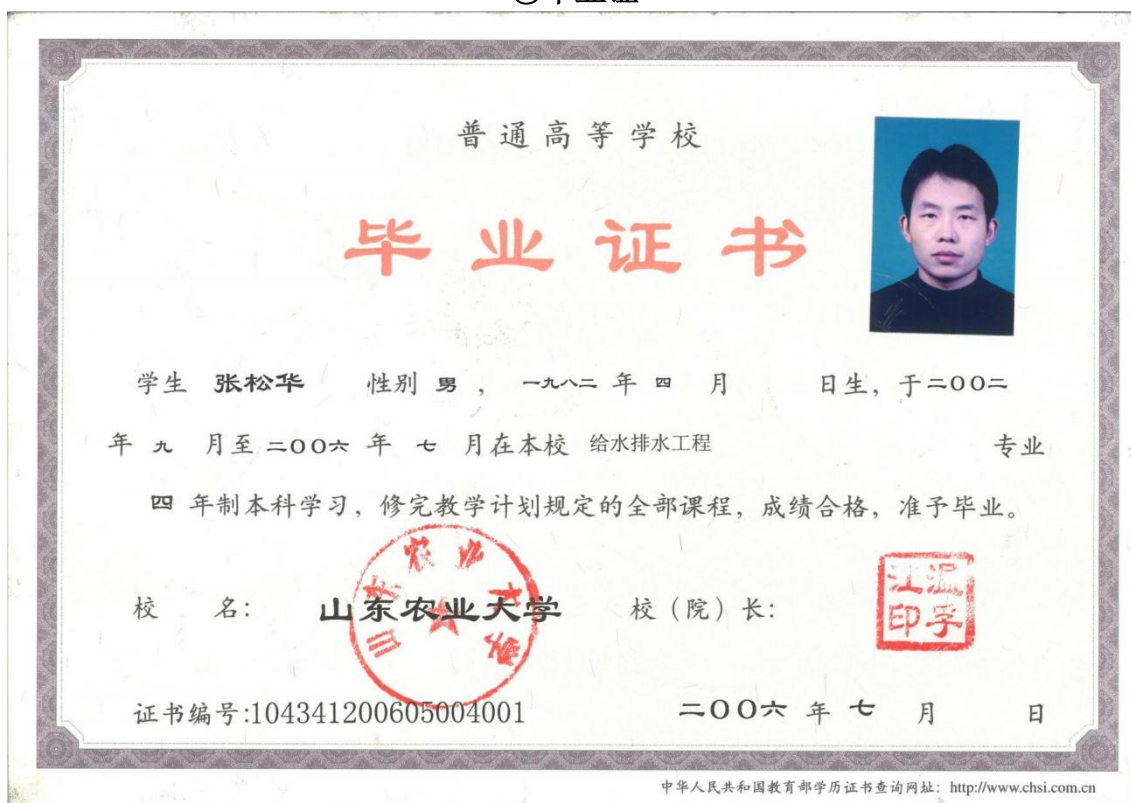 毕业证
普通高等学校
毕业证书
学生 张松华 性别 男 , 一九八二 年 四 月 日生, 于二00二
年 九 月至 二00六 年 七 月在本校 给水排水工程 专业
四 年制本科学习, 修完教学计划规定的全部课程, 成绩合格, 准予毕业。
校 名: 山东农业大学 校 (院) 长:
山东农业大学
温孚江印
证书编号:104341200605004001 二00六 年 七 月 日
中华人民共和国教育部学历证书查询网址: http://www.chsi.com.cn